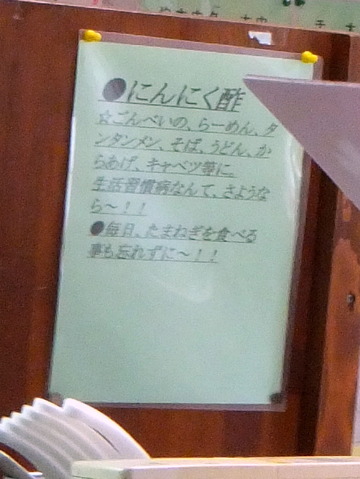 ●にんにく酢
☆ごんべいの、らーめん、タ
ンタンメン、そば、うどん、か
らあげ、キャベツ等に
生活習慣病なんて、さような
ら～！！
●毎日、たまねぎを食べる
事も忘れずに～！！